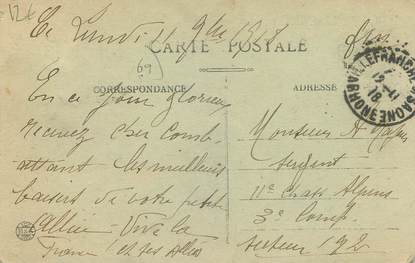 12€
Ce Lundi 11 9bre 1918
CARTE POSTALE
69
CORRESPONDANCE
En ce jour glorieux
recevez cher Comb-
attant les meilleurs
baisers de votre petite
alliée Vive la
France et ses Alliés
ADRESSE
Monsieur A
Sergent
11e Chass Alpins
3e Comp.
Secteur 192
VILLEFRANCHE
12-11
18